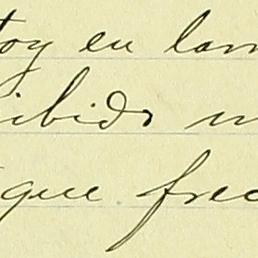 toy en lam
ibido m
que frec